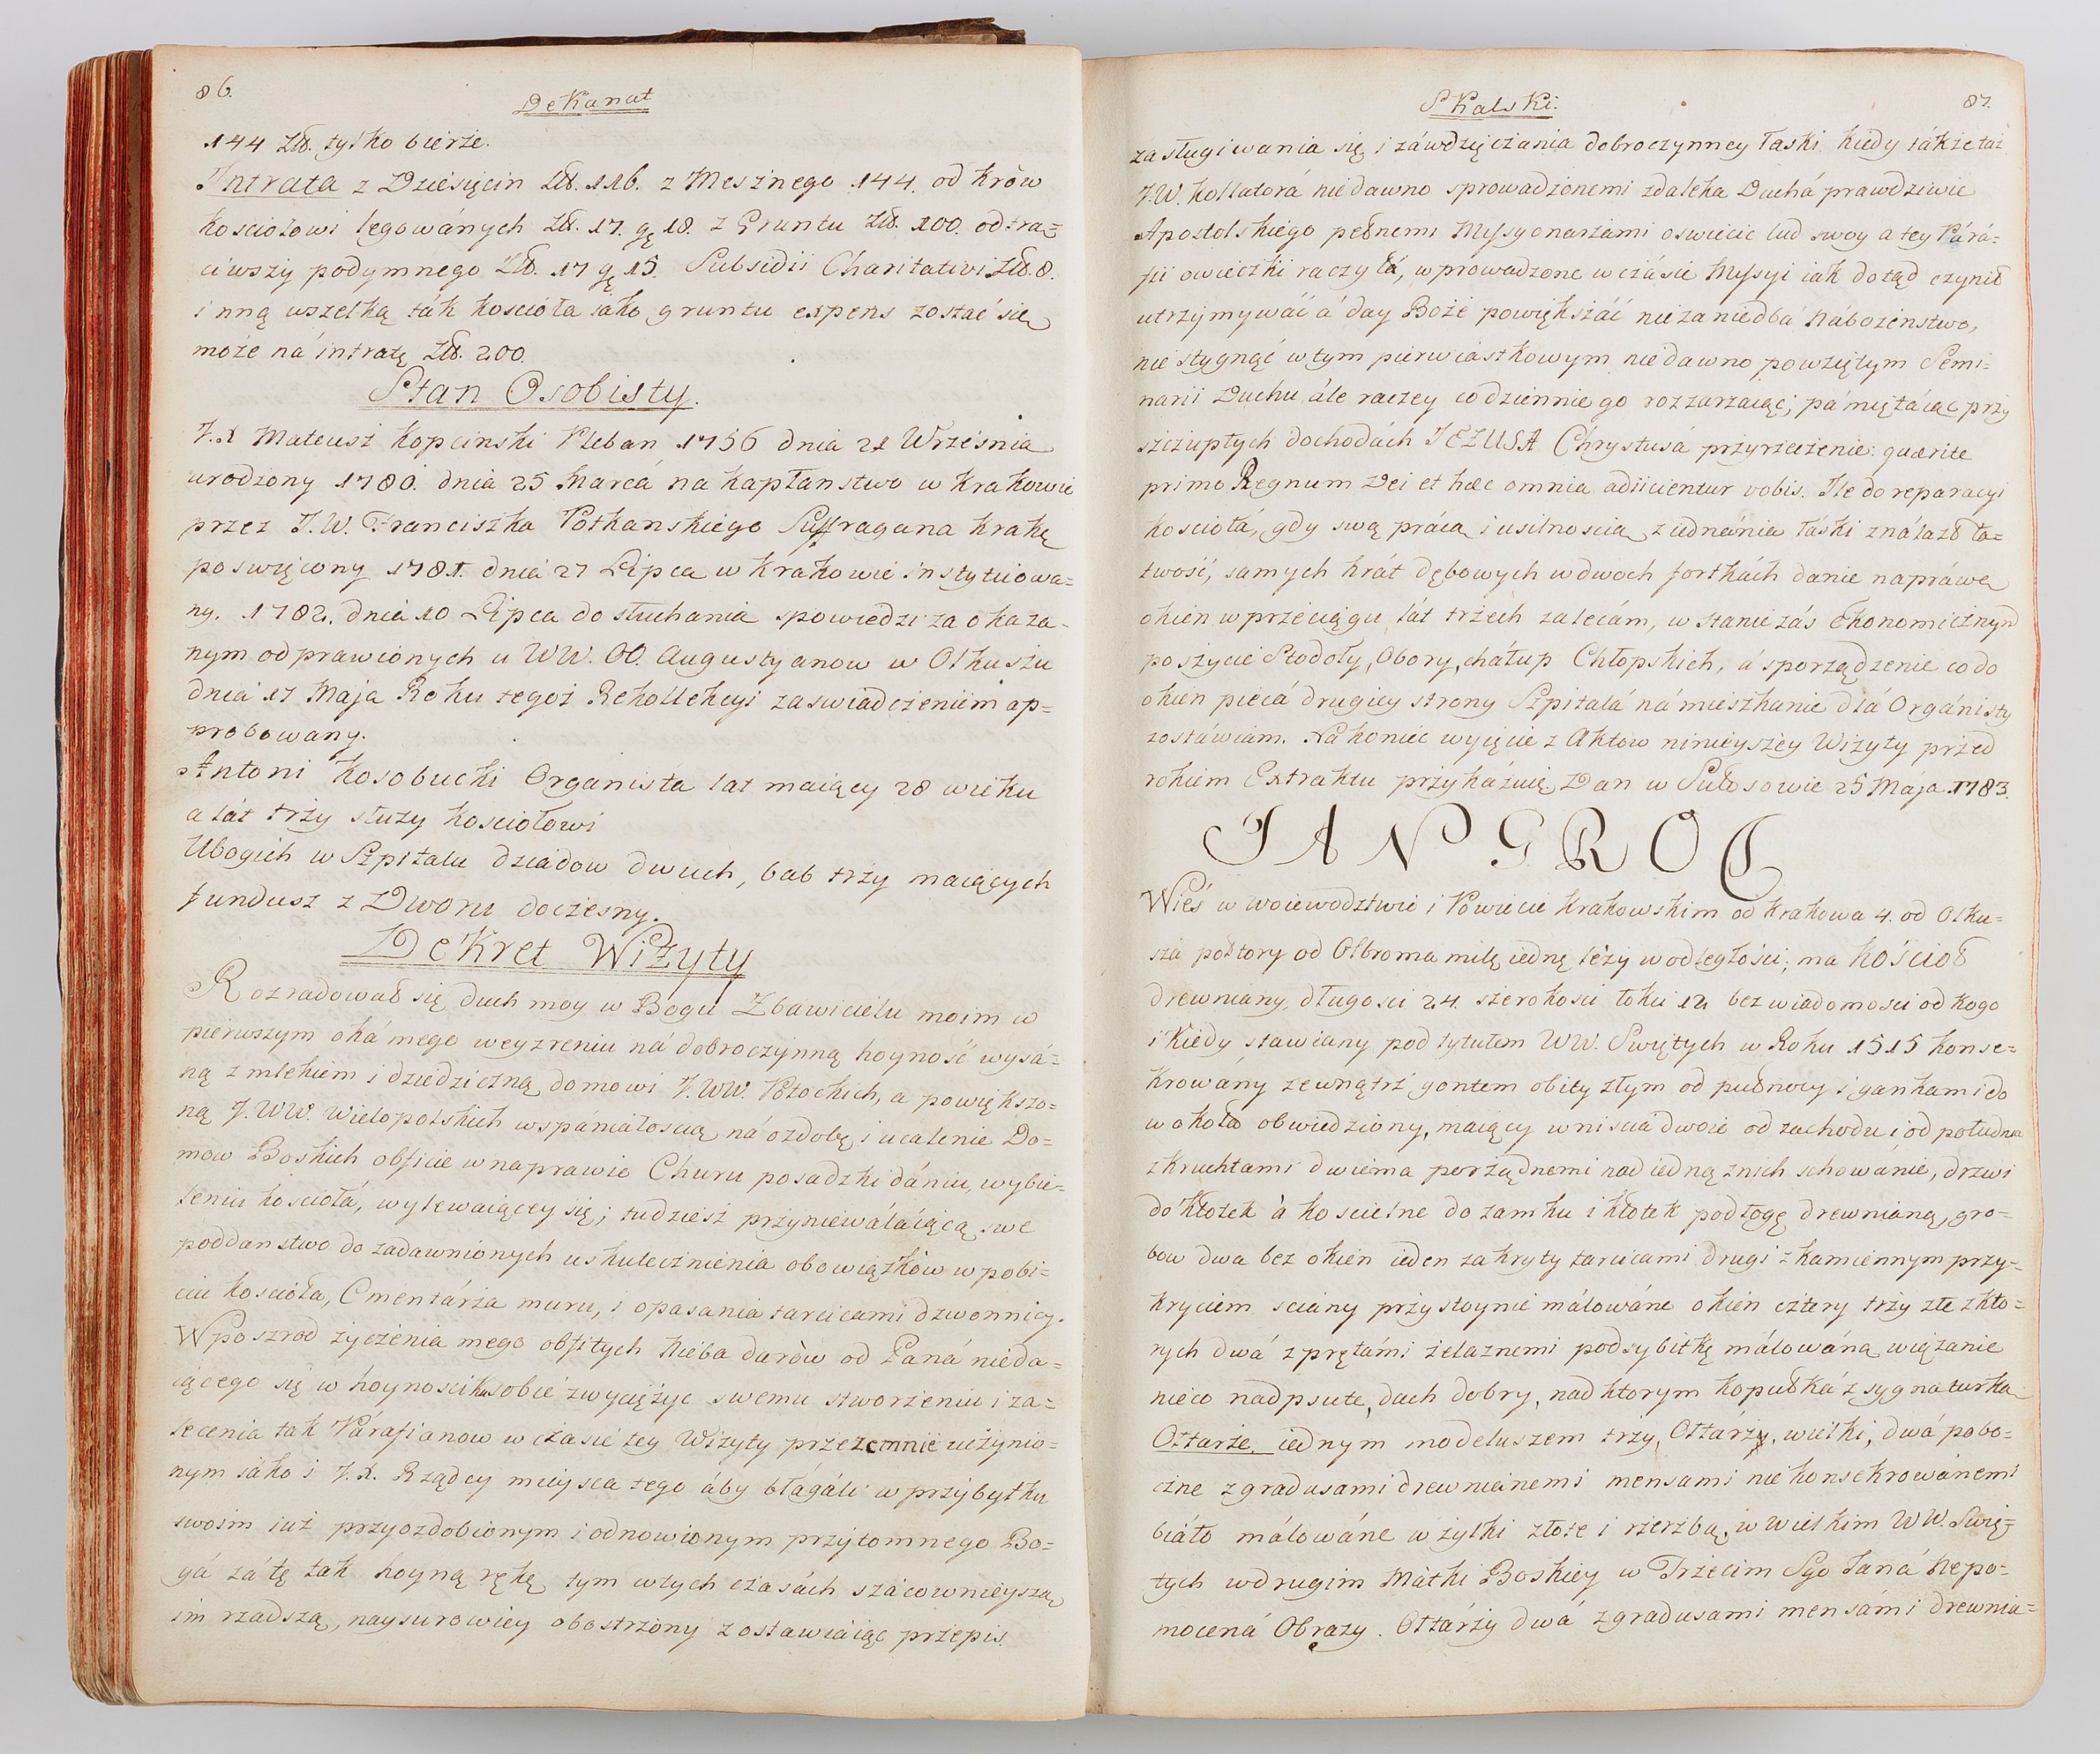 86.
Dekanat
144 Zł. tylko bierze.
Intrata z Dziesięcin Zł. 116. z Mesznego 144. od krów
kosciołowi legowánych Zł. 17. gę 18. z Gruntu Zł. 100. odtra=
ciwszy podymnego Zł. 17 gę 15. Subsidii Charitativi Zł. 8.
inną wszelką ták koscioła iako gruntu expens zostać się
może ná intratę Zł. 200.
Stan Osobisty.
J.X Mateusz Kopcinski Pleban 1756 dnia 21 Wrzesnia
urodzony 1780. dnia 25 Marcá na kapłanstwo w Krakowie
przez J.W. Franciszka Potkanskiego Suffragana Krakę
poswięcony 1781. dniá 27 Lipca w Krakowie instytuowa=
ny. 1782. dniá 10 Lipca do słuchania spowiedzi za okaza-
nym odprawionych u WW. OO. Augustyanow w Olkuszu
dniá 17 Maja Roku tegoż Rekollekcyi zaswiadczeniem ap=
probowany.
Antoni Kosobucki Organista lat maiący 28 wieku
a lát trzy służy kosciołowi
Ubogich w Szpitalu dziadow dwuch, bab trzy maiących
fundusz z Dworu doczesny.
Dekret Wizyty
Rozradował się duch moy w Bogu Zbawicielu moim w
pierwszym oká mego weyzreniu ná dobroczynną hoyność wyssá=
ną z mlekiem i dziedziczną domowi J.WW. Potockich, a powiększo=
ną J.WW. Wielopolskich wspániałoscią ná ozdobę i ucalenie Do=
mow Boskich obficie w naprawie Churu posadzki dániu, wybie=
leniu kosciołá, wylewaiącey się; tudziesz przyniewáláiącą swe
poddanstwo do zadawnionych uskutecznienia obowiązków w pobi=
ciu koscioła, Cmentárza muru, i opasania tarcicami dzwonnicy.
Wposzrod życzenia mego obfitych Nieba darów od Paná nieda=
iącego się w hoynosci ku sobie zwyciężyc swemu stworzeniu i za=
lecenia tak Párafianow w czasie tey Wizyty przezemnie uczynio=
nym iáko i J.X. Rządcy mieysca tego áby błágáli w przybytku
swoim iuż przyozdobionym i odnowionym przytomnego Bo=
gá zá tę tak hoyną rękę tym w tych czasách szácownieyszą
im rzadszą, naysurowiey obostrzony zostawiaiąc przepis.
Skalski.
87.
zasługiwania się i záwdzięczania dobroczynney łaski kiedy tákże taż
J.W. Kollatorá niedawno sprowadzonemi zdaleka Duchá prawdziwie
Apostolskiego pełnemi Missyonarzami oswiecic lud swoy a tey Párá=
fii owieczki raczyłá, wprowadzone w czásie Missyi iak dotąd czynił
utrzymywáć á day Boże powiększáć nie zaniedbá nábożeństwo,
nie stygnąć w tym pierwiastkowym niedawno powziętym Semi=
narii Duchu ále raczey codziennie go rozzarzaiąc; pámiętáiąc przy
szczupłych dochodách JEZUSA Chrystusá przyrzeczenie: quærite
primo Regnum Dei et hæc omnia adiicientur vobis. Ile do reparacyi
kosciołá, gdy swą prácą i usilnoscią ziednánia łáski ználazł ła=
twość, samych krát dębowych w dwoch fortkách danie nápráwę
okien w przeciągu lát trzech zalecám, w stanie zás Ekonomicznym
poszycie Stodoły, Obory, chałup Chłopskich, á sporządzenie co do
okien piecá drugiey strony Szpitalá ná mieszkanie dlá Orgánisty
zostáwiam. Nákoniec wyięcie z Aktow ninieyszey Wizyty przed
rokiem Extraktu przykázuię Dan w Sułosowie 25 Mája 1783.
JANGROT
Wieś w woiewodztwie i Powiecie Krakowskim od Krakowa 4. od Olku=
szá połtory od Olbroma milę iednę leży w odległości; ma kościoł
drewniany, długosci 24. szerokosci łokci 12 bez wiadomosci od kogo
i kiedy stawiany pod tytułem WW. Swiętych w Roku 1515 konse=
krowány zewnątrz gontem obity złym od pułnocy i gankami do
wokoła obwiedziony, maiący wniscia dwoie od zachodu i od południa
z kruchtami dwiema porządnemi nad iedną znich schowánie, drzwi
do kłotek à koscielne do zamku i kłotek podłogę drewnianą, gro=
bow dwa bez okien ieden zakryty tarcicami drugi z kamiennym przy=
kryciem sciány przystoynie málowáne okien cztery trzy złe z kto=
rych dwá z prętámi żelaznemi podsybitkę málowáną wiązanie
nieco nadpsute, dach dobry, nad ktorym kopułká z sygnaturką
Ołtarze iednym modeluszem trzy, Ołtárzy, wielki, dwá pobo=
czne z gradusami drewniánemi mensami niekonsekrowánemi
biáło málowáne w żyłki złote i rzezbą, w Wielkim WW. Swię=
tych w drugim Mátki Boskiey w Trzecim Sgo Janá Nepo=
mocená Obrazy. Ołtárzy dwá z gradusami mensámi drewnia=